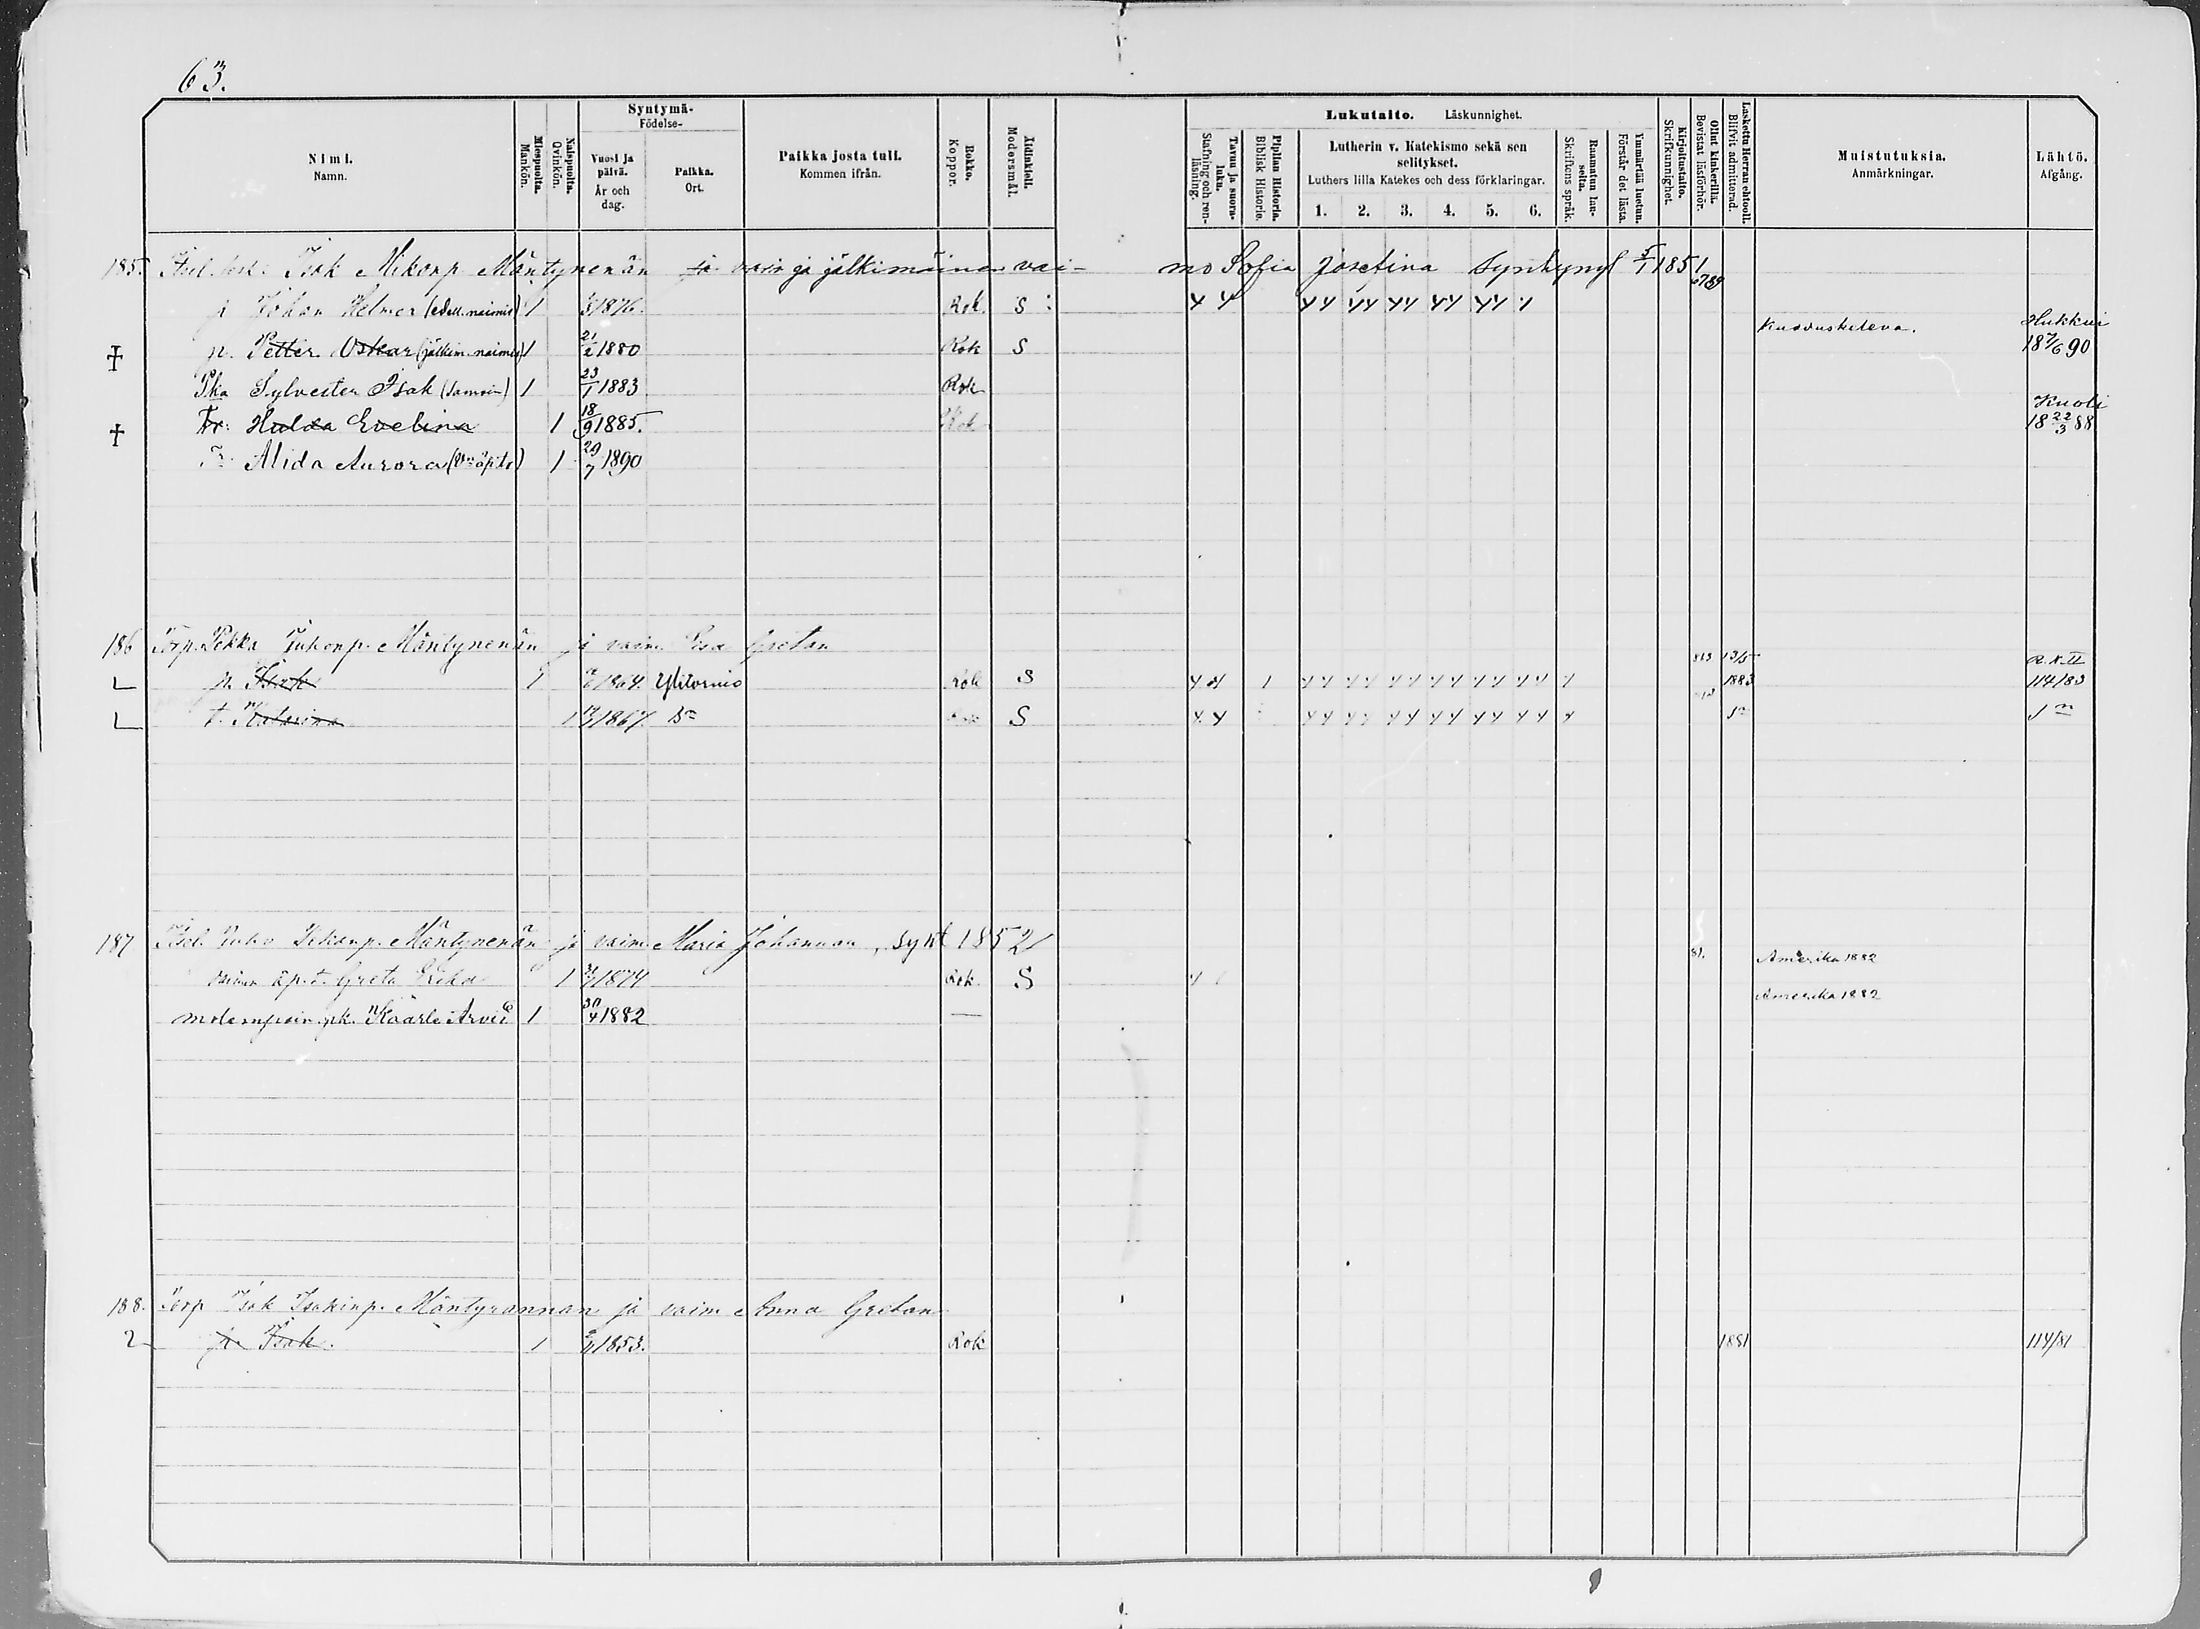 63.
Nimi.
Namn.
Miespuolta.
Mankön.
Naispuolta.
Qvinkön.
Syntymä-
Födelse-
Vuosi ja
päivä.
År och
dag.
Paikka.
Ort.
Paikka josta tuli.
Kommen ifrån.
Rokko.
Koppor.
Äidinkieli.
Modersmål.
Lukutaito. Läskunnighet.
Tavuu ja suora-
luku.
Stafning och ren-
läsning.
Piplian Historia.
Biblisk Historie.
Lutherin v. Katekismo sekä sen
selitykset.
Luthers lilla Katekes och dess förklaringar.
1. 2. 3. 4. 5. 6.
Raamatun lau-
seita.
Skriftens språk.
Ymmärtää luetun.
Förstår det lästa.
Kirjoitustaito.
Skrifkunnighet.
Ollut kinkerillä.
Bevistat läsförhör.
Laskettu Herran ehtooll.
Blifvit admitterad.
Muistutuksia.
Anmärkningar.
Lähtö.
Afgång.
185. Isak Mikonp. Mäntynenän ja vain ja jälkimäinen vai- mo Sofia Josefina Syntynyt 5/1 1851
p. Johan Helmer (edell. naimis) 1 1876. Rok. S 4 4 44 44 44 44 44 1 6789
p. Petter Oskar (jälkim. naimis) 1 21/2 1880 Rok S Hukkui 18 7/6 90
Pka Sylvester Isak 1 23/1 1883 Rok
Tr. Hulda Evelina 1 18/9 1885. Rok Kuoli 18 22/3 88
Tr. Alida Aurora 1 29/7 1890
186 Torp. Pekka Juhonp. Mäntynenän ja vaim. Gretan
p. Isak 1 1864. Ylitornio Rok S 44 1 44 44 44 44 44 44 1 13/5 1883 R.K.II 114/83
t. Katarina 1 1867. Dº S 44 44 44 44 44 44 44 4
187 Juho Mäntynenän ja vaim. Maria Johannan, synt 1852
äp. t. Greta 1 1874 Rok. S 4 81. Amerika 1882
pk. Kaarle Arvid 1 30/4 1882 — Amerika 1882
188. Torp Isak Isakinp. Mäntyrannan ja vaim. Anna Gretan
2 p. Isak. 1 1853. Rok 1881 114/81